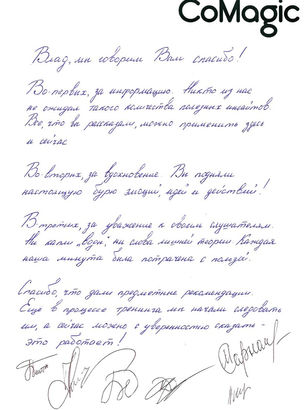 CoMagic
Влад, мы говорим Вам спасибо!
Во-первых, за информацию. Никто из нас
не ожидал такого количества полезных инсайтов.
Все, что вы рассказали, можно применить здесь
и сейчас
Во вторых, за вдохновение. Вы подняли
настоящую бурю эмоций, идей и действий!
В третьих, за уважение к своим слушателям.
Ни капли "воды", ни слова лишней теории. Каждая
наша минута была потрачена с пользой.
Спасибо, что дали предметные рекомендации.
Еще в процессе тренинга мы начали следовать
им, а сейчас можно с уверенностью сказать -
это работает!